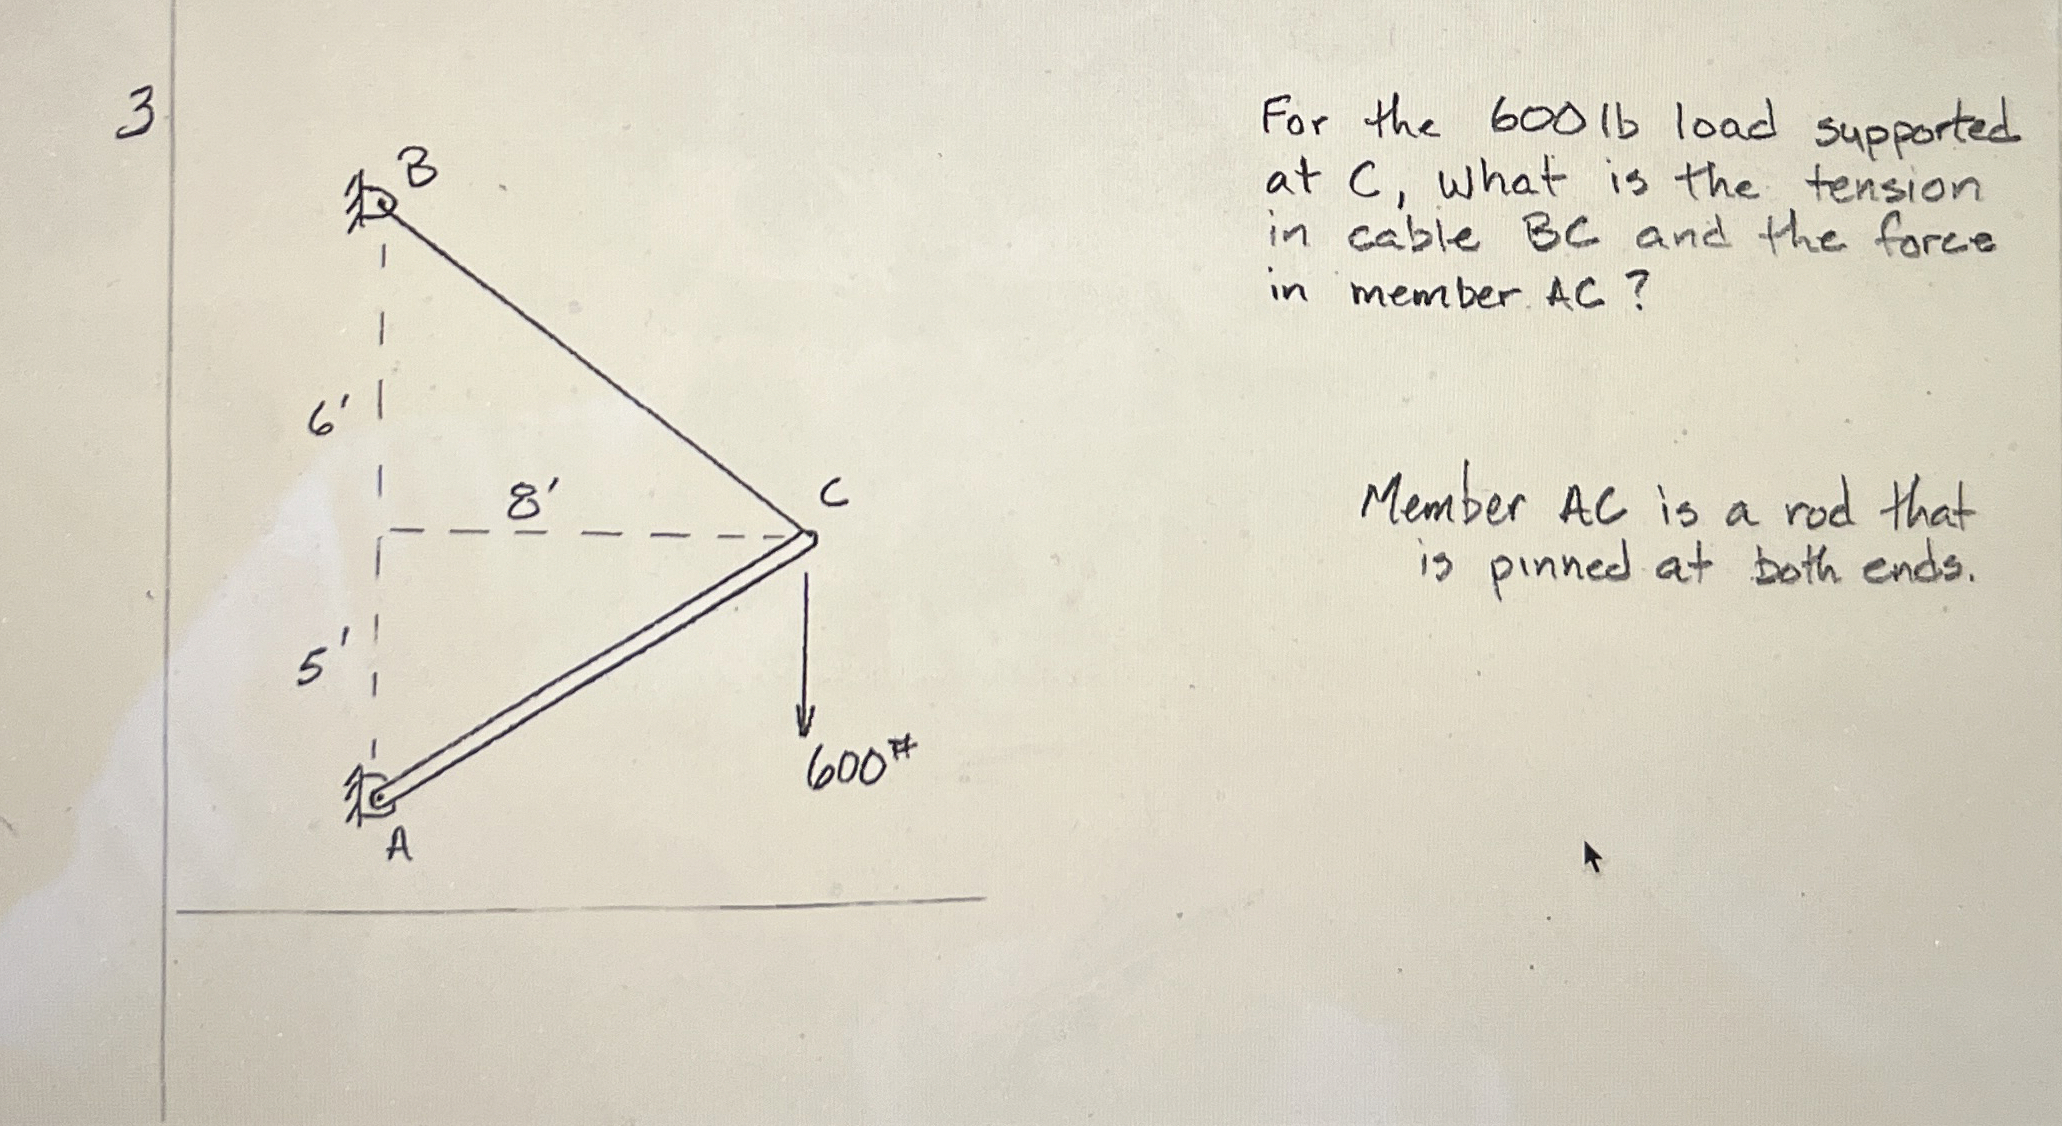 3
B
6'
8'
C
5'
600#
A
For the 600 lb load supported
at C, what is the tension
in cable BC and the force
in member AC?
Member AC is a rod that
is pinned at both ends.